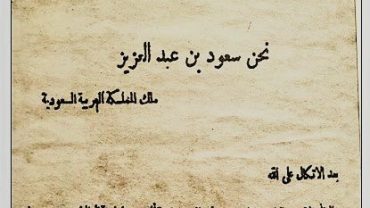 نحن سعود بن عبد العزيز
ملك المملكة العربية السعودية
بعد الاتكال على الله